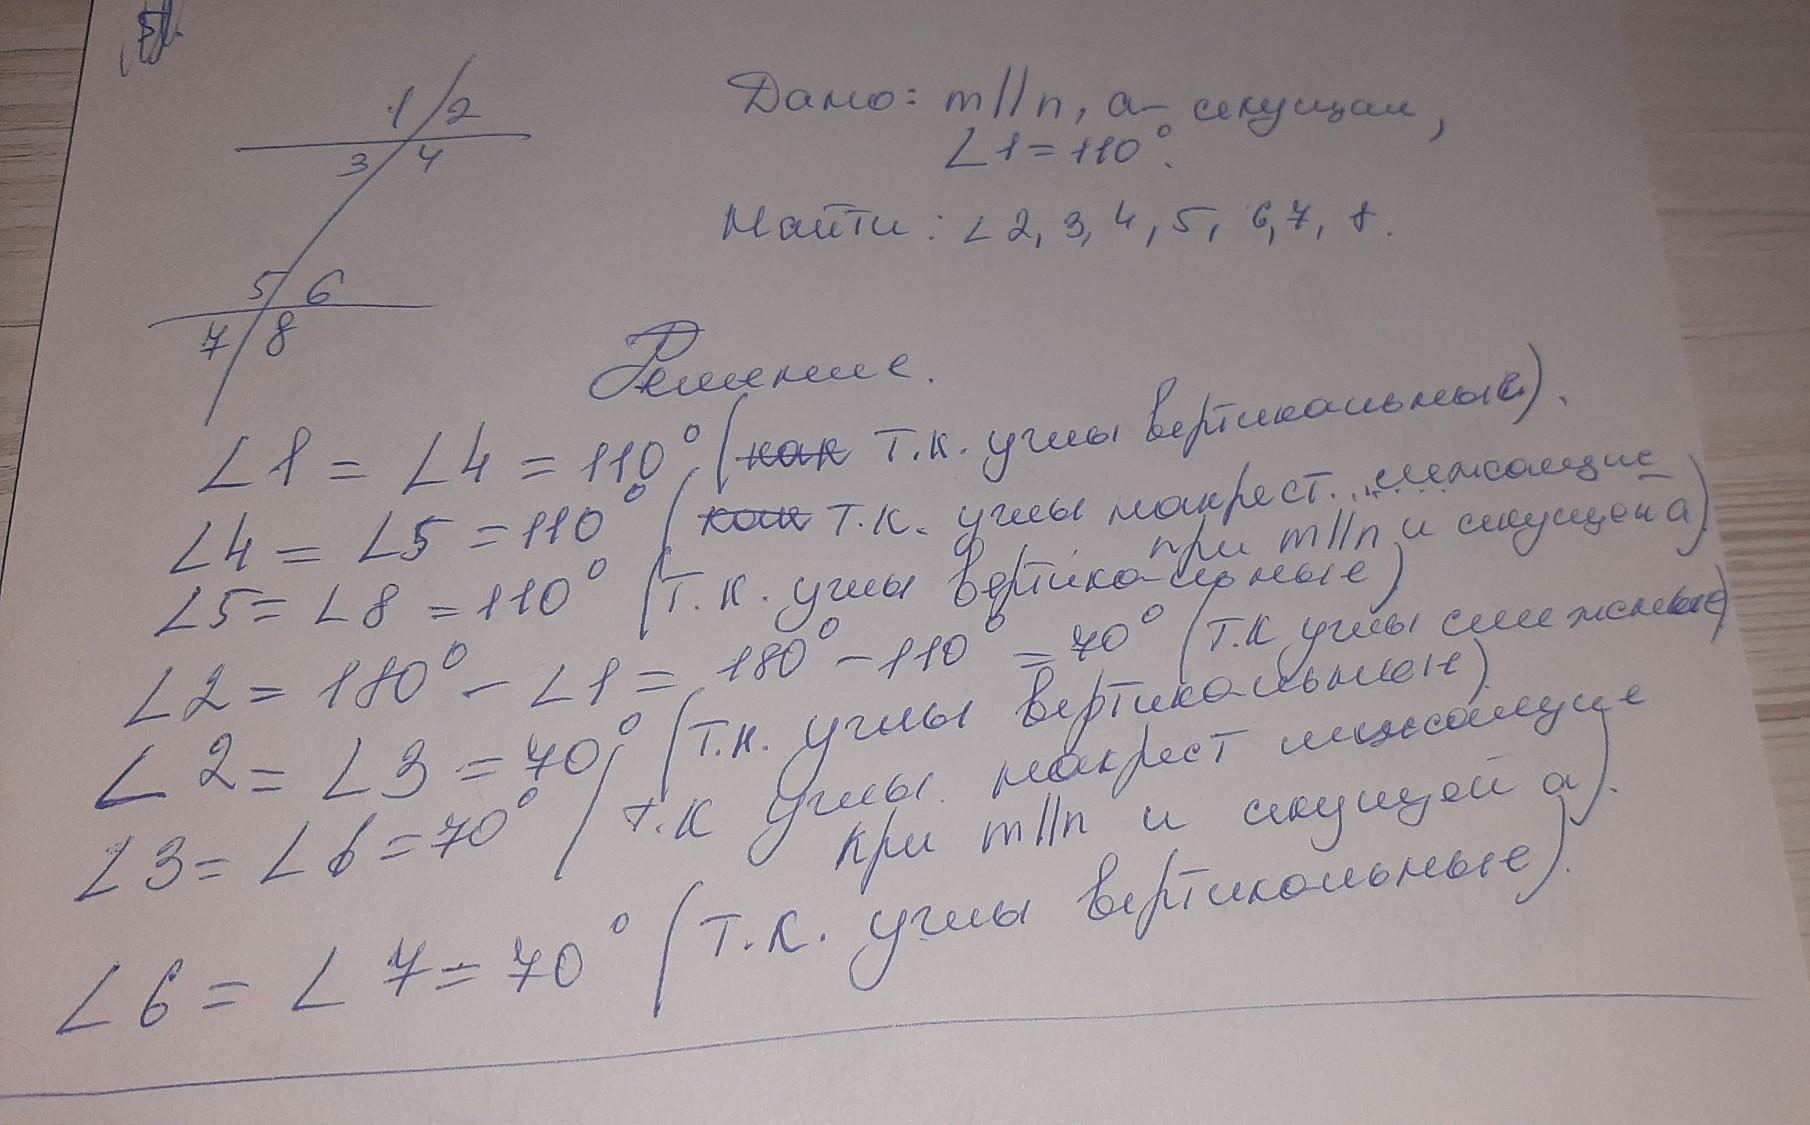 1 2
3 4
5 6
7 8
Дано: m||n, a – секущая,
∠1 = 110°.
Найти: ∠2, 3, 4, 5, 6, 7, 8.
Решение.
∠1 = ∠4 = 110° (как т.к. углы вертикальные).
∠4 = ∠5 = 110° (как т.к. углы накрест лежащие
при m||n и секущей a)
∠5 = ∠8 = 110° (т.к. углы вертикальные)
∠2 = 180° – ∠1 = 180° – 110° = 70° (т.к углы смежные)
∠2 = ∠3 = 70° (т.к. углы вертикальные)
∠3 = ∠6 = 70° (т.к углы накрест лежащие
при m||n и секущей a).
∠6 = ∠7 = 70° (т.к. углы вертикальные).